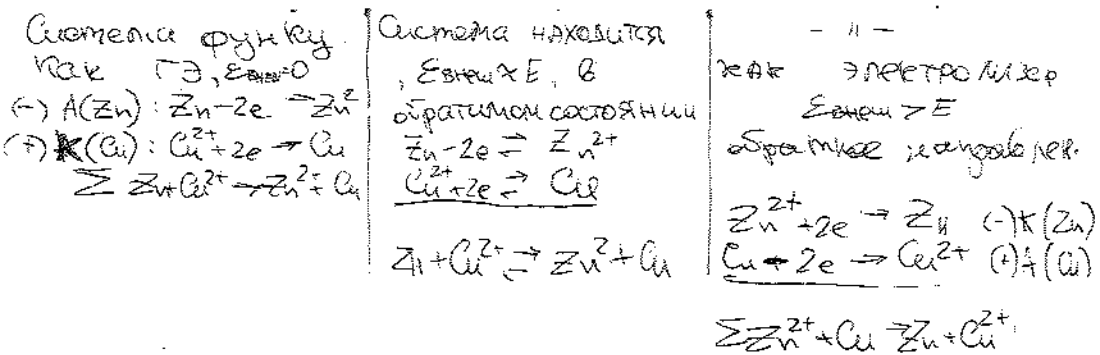 Система функц.
как ГЭ, Eвнеш=0
(-) A(Zn): Zn-2e → Zn²
(+) K(Cu): Cu²⁺+2e → Cu
Σ Zn+Cu²⁺→Zn²⁺+Cu
Система находится
, Eвнеш≈E, в
обратимом состоянии
Zn-2e ⇄ Zn²⁺
Cu²⁺+2e ⇄ Cu
Zn+Cu²⁺ ⇄ Zn²+Cu
- 11 -
как электролизер
Eвнеш > E
обратное
Zn²⁺+2e → Zn (-)K(Zn)
Cu-2e → Cu²⁺ (+)A(Cu)
ΣZn²⁺+Cu → Zn+Cu²⁺